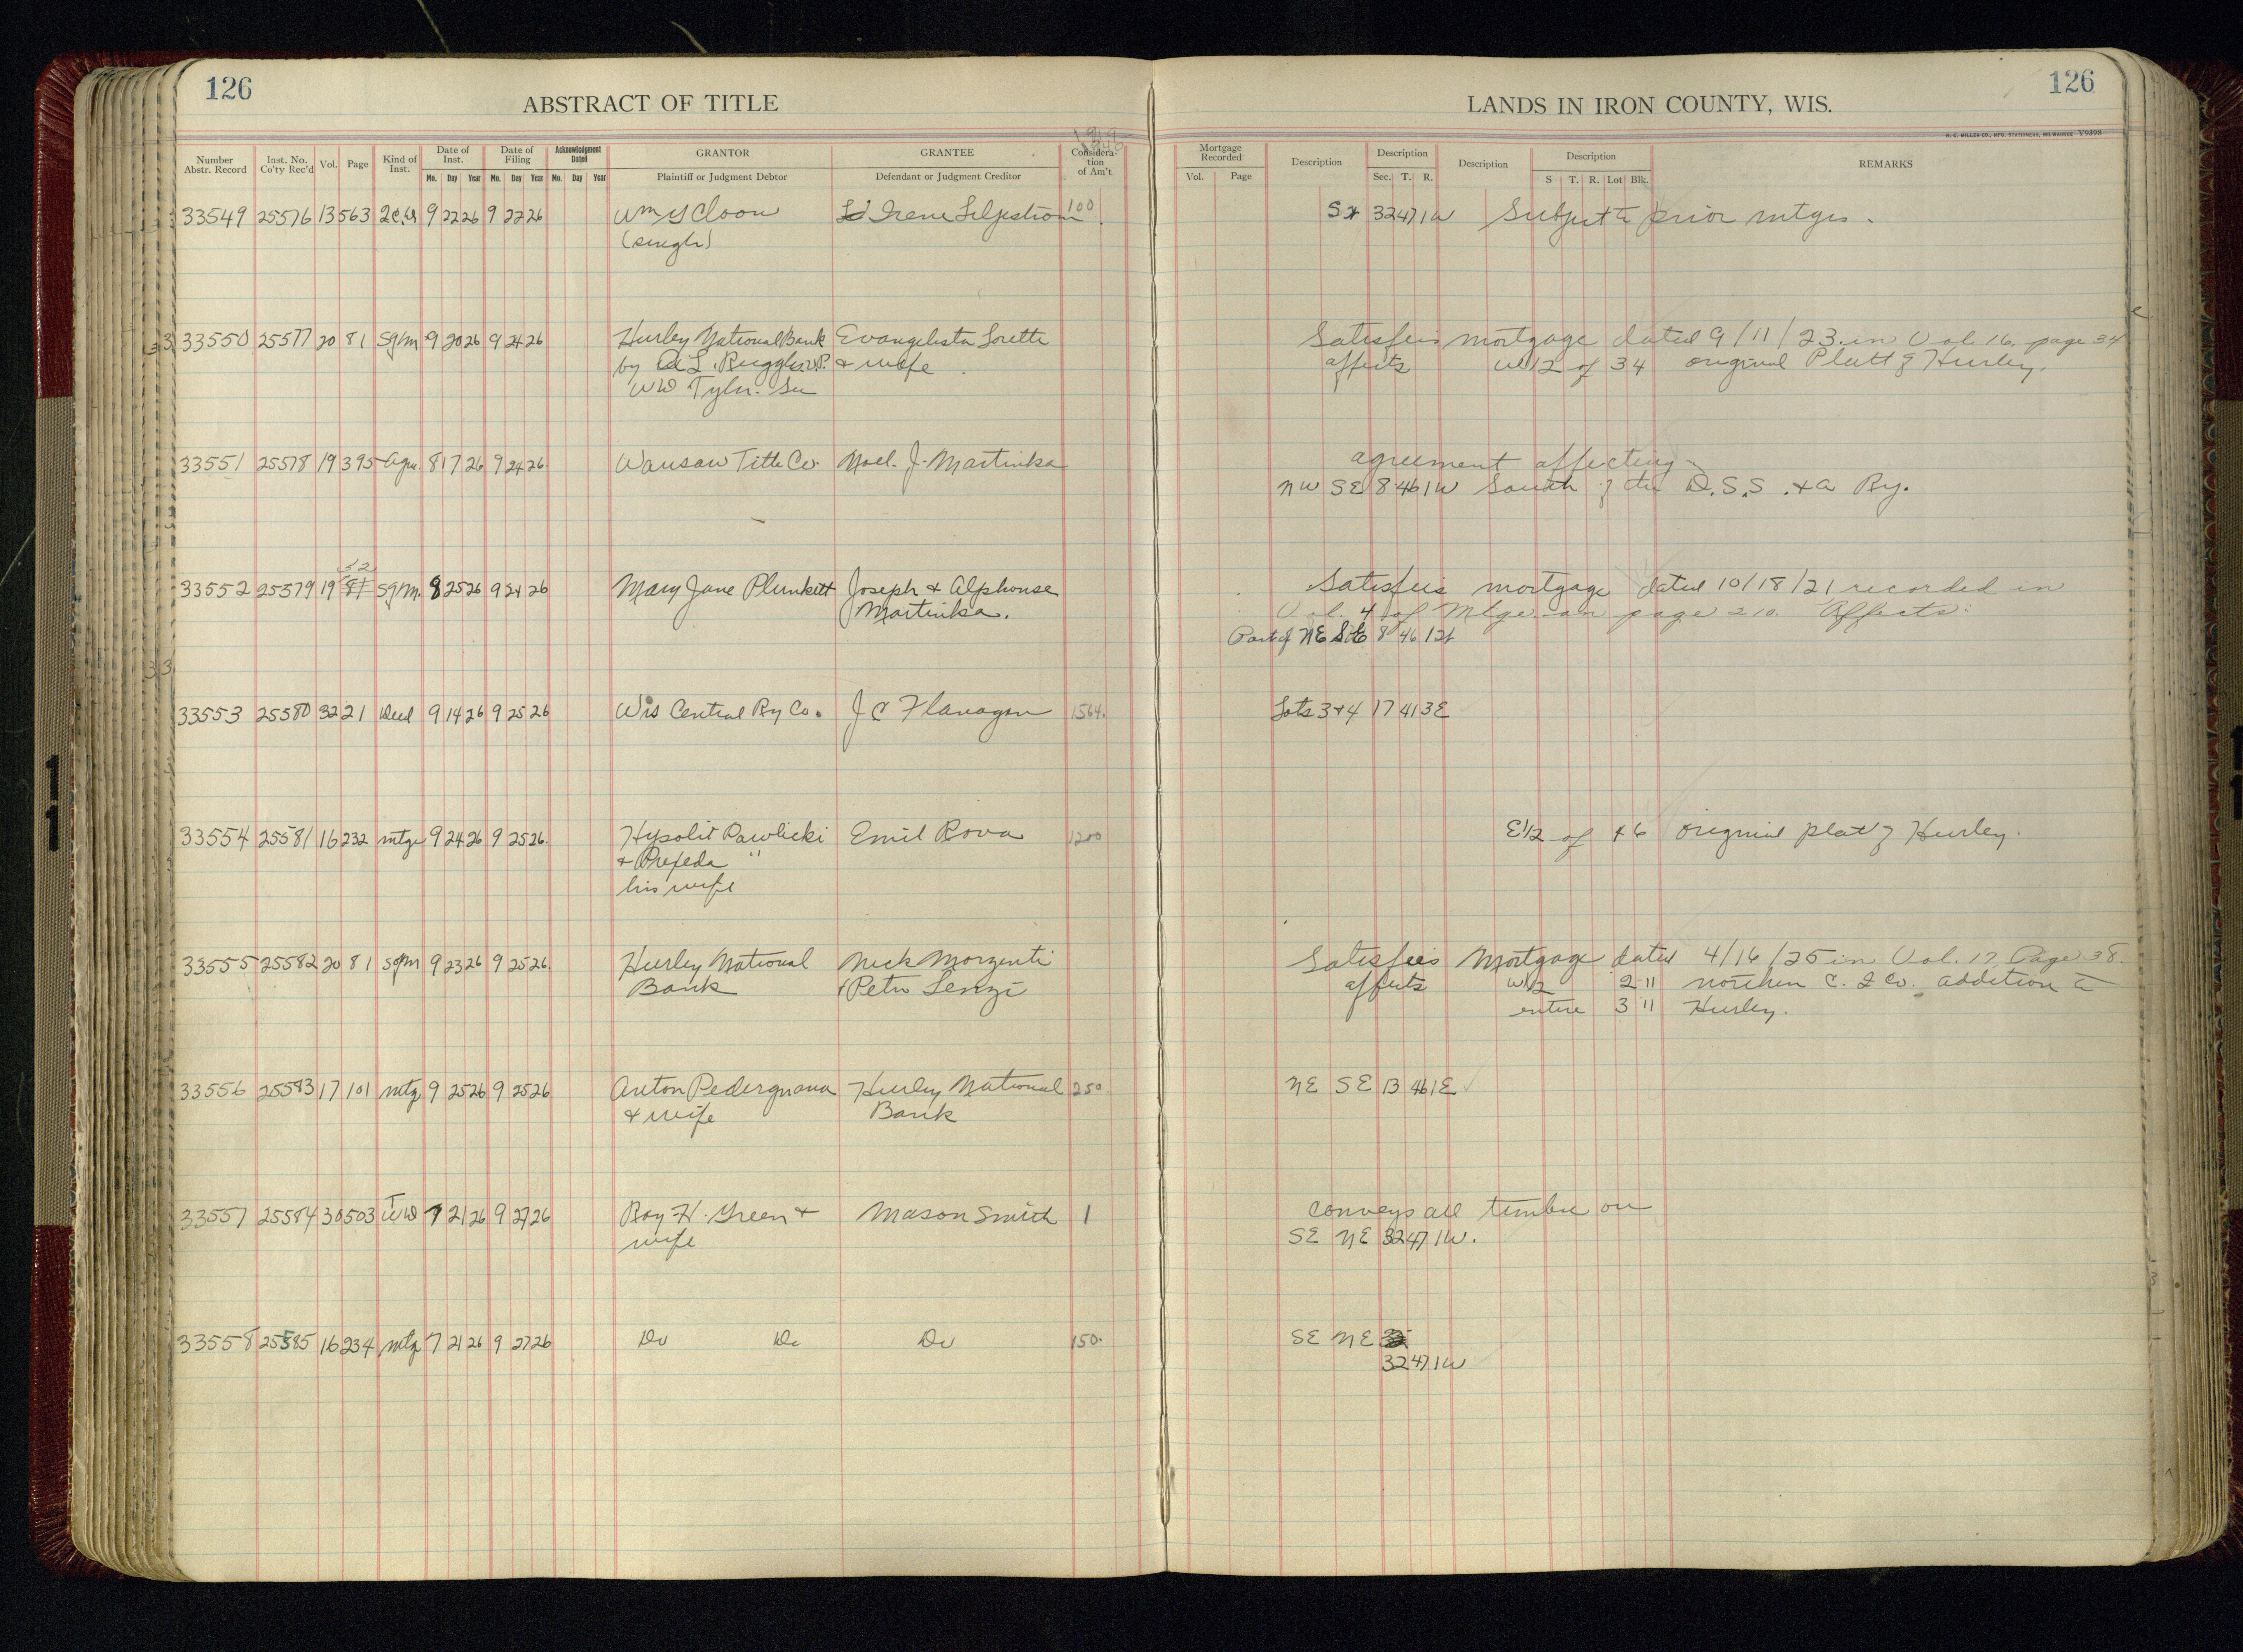 126
126
ABSTRACT OF TITLE
LANDS IN IRON COUNTY, WIS.
H. C. MILLER CO., MFG. STATIONERS, MILWAUKEE V9398
Number Abstr. Record Inst. No. Co'ty Rec'd Vol. Page Kind of Inst. Date of Inst. Mo. Day Year Date of Filing Mo. Day Year Acknowledgment Dated Mo. Day Year GRANTOR Plaintiff or Judgment Debtor GRANTEE Defendant or Judgment Creditor Consideration of Am't
Mortgage Recorded Vol. Page Description Description Sec. T. R. Description Description S T. R. Lot Blk. REMARKS
33549 25576 13 563 9 22 26 9 22 26 Wm Irene 100 32 47 1W Subject to prior mtges.
(single)
33550 25577 20 81 Sgm 9 20 26 9 24 26 Hurley National Bank Evangelista Loretti Satisfies mortgage dated 9/11/23 in Vol. 16, page 34
by A L Ruggles V.P. & wife affects W1/2 of 3 4 original Platt of Hurley.
WW Tyler Sec
33551 25578 19 395 Agre. 8 17 26 9 24 26 Wausau Title Co. Noel J. Martinka agreement affecting
NW SE 8 46 1W South of the D.S.S. & A Ry.
52
33552 25579 19 81 Sgm. 8 25 26 9 24 26 Mary Jane Plunkett Joseph & Alphonse Satisfies mortgage dated 10/18/21 recorded in
Martinka. Vol. 4 of Mtge. on page 210. Affects:
Part of NE SE 8 46 1W
33553 25580 32 21 Deed 9 14 26 9 25 26 Wis Central Ry Co. J C Flanagan 1564. Lots 3 & 4 17 41 3E
33554 25581 16 232 mtge 9 24 26 9 25 26. Hypolit Pawlicki Emil Rova 1200 E1/2 of 4 6 original plat of Hurley.
& "
his wife
33555 25582 20 81 Sgm 9 23 26 9 25 26. Hurley National Nick Morzenti Satisfies Mortgage dated 4/16/25 in Vol. 17 Page 38.
Bank & Peter Lenzi affects W1/2 2 11 northern C. & Co. addition to
entire 3 11 Hurley.
33556 25583 17 101 mtg 9 25 26 9 25 26 Anton Pedergnana Hurley National 250. NE SE 13 46 1E
& wife Bank
33557 25584 30 503 T WD 7 21 26 9 27 26 Roy H. Green & Mason Smith 1 conveys all timber on
wife SE NE 32 47 1W.
33558 25585 16 234 mtg 7 21 26 9 27 26 Do Do Do 150. SE NE
32 47 1W